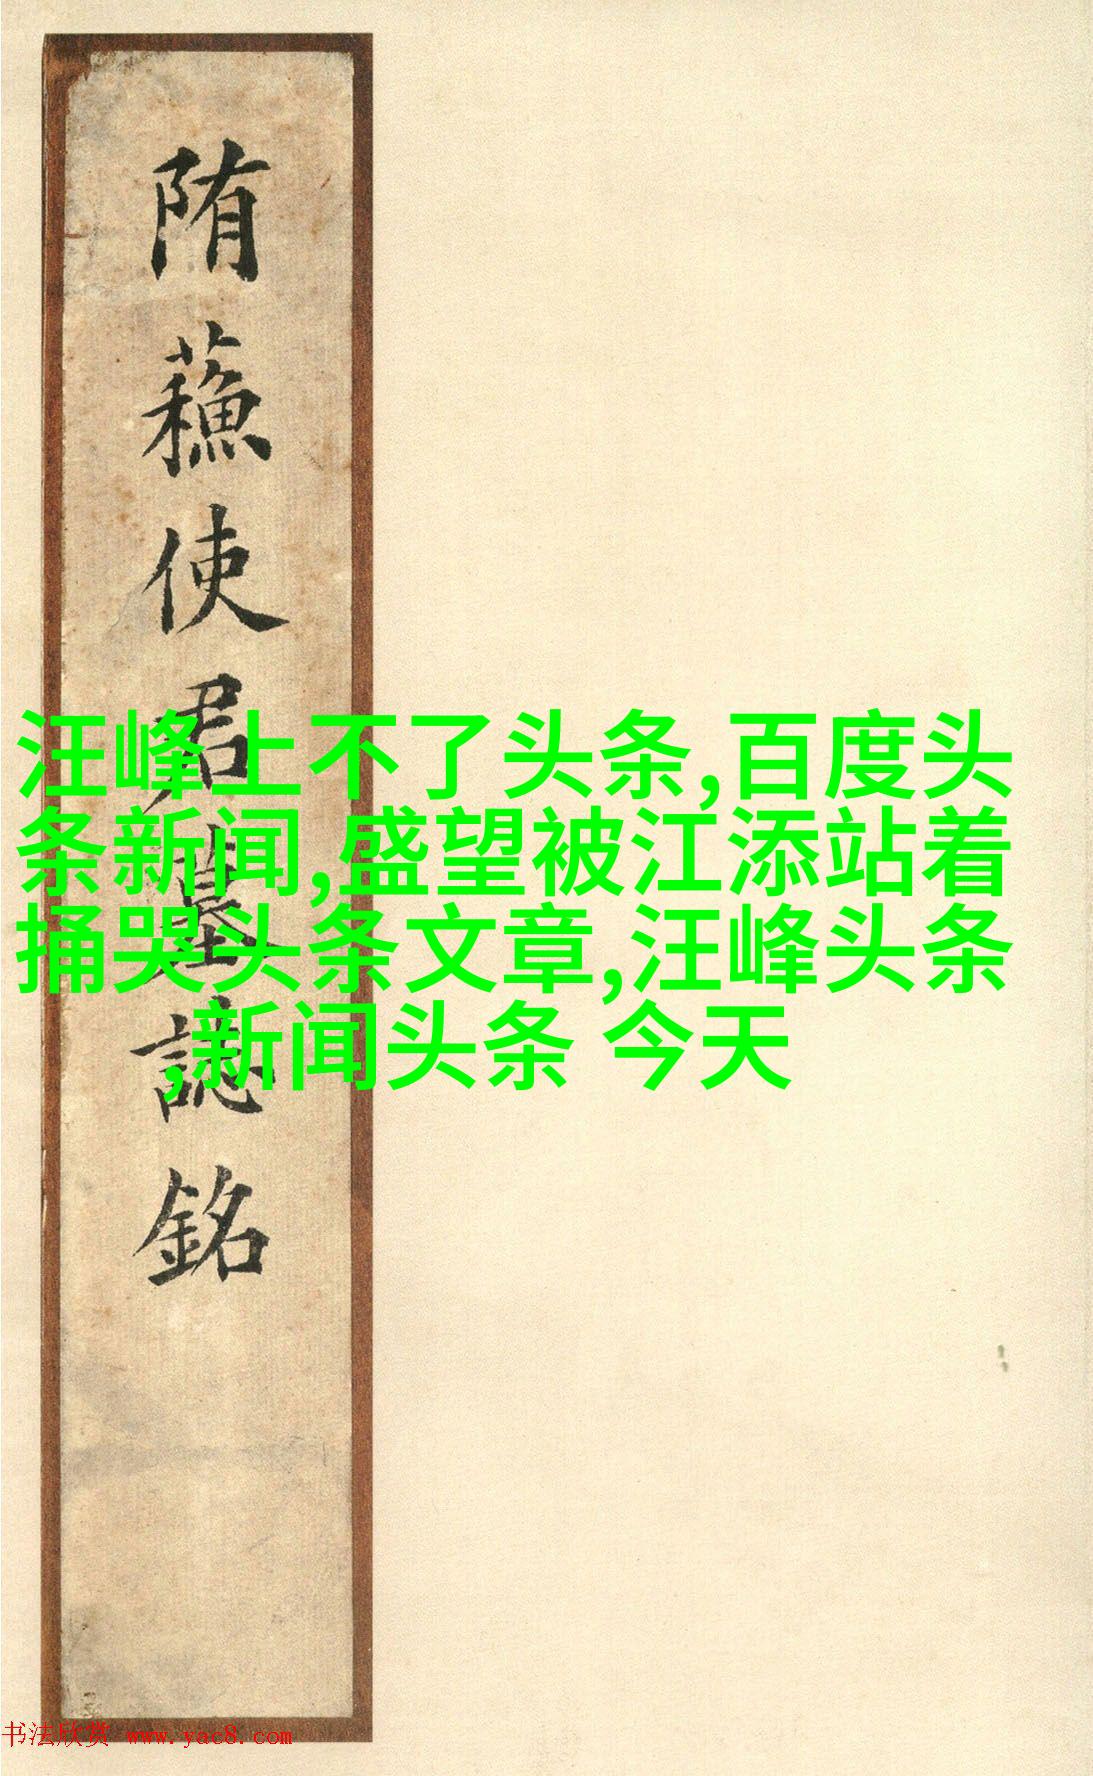 隋蘓使君墓誌銘
汪峰上不了头条,百度头
条新闻,盛望被江添站着
捅哭头条文章,汪峰头条
,新闻头条 今天
书法欣赏 www.yac8.com